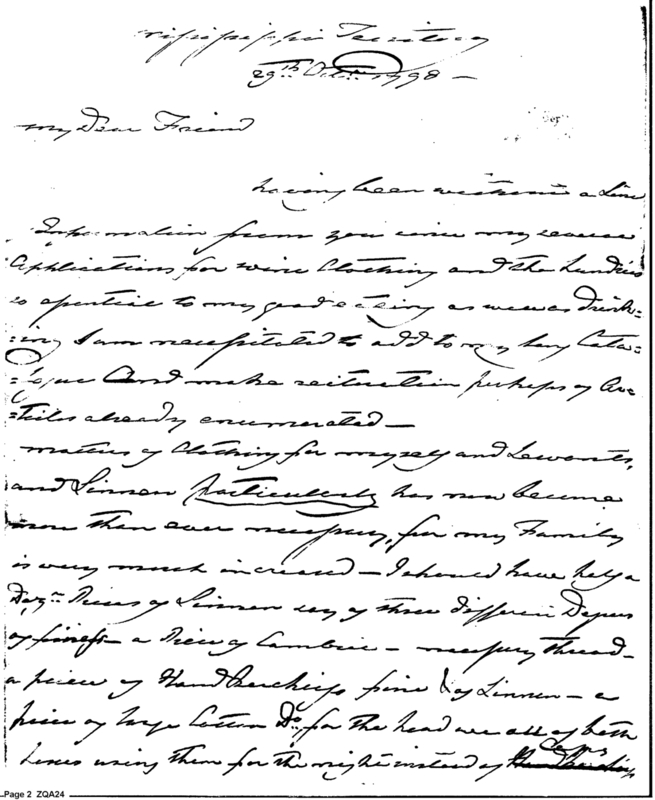 Missisippi Territory
29th Octr 1798 -
My Dear Friend
having been without a Line
Information from you since my several
Applications for wine Clothing and the Sundries
so essential to my good eating as well as drink=
=ing I am necessitated to add to my long Cata=
=logue And make recitation perhaps of Ar=
=ticles already enumerated -
matters of Clothing for myself and Servants,
and Linnen particularly has now become
more than ever necessary, for my Family
is very much increased - I should have half a
Dozn Pieces of Linnen say of three differin
of finess - a Piece of Cambric - necessary thread -
a piece of Hand Kerchiefs fine & of Linnen - a
piece of large Cotton Do for the head we all of both
Sexes using them for the night instead of Caps
Page 2 ZQA24